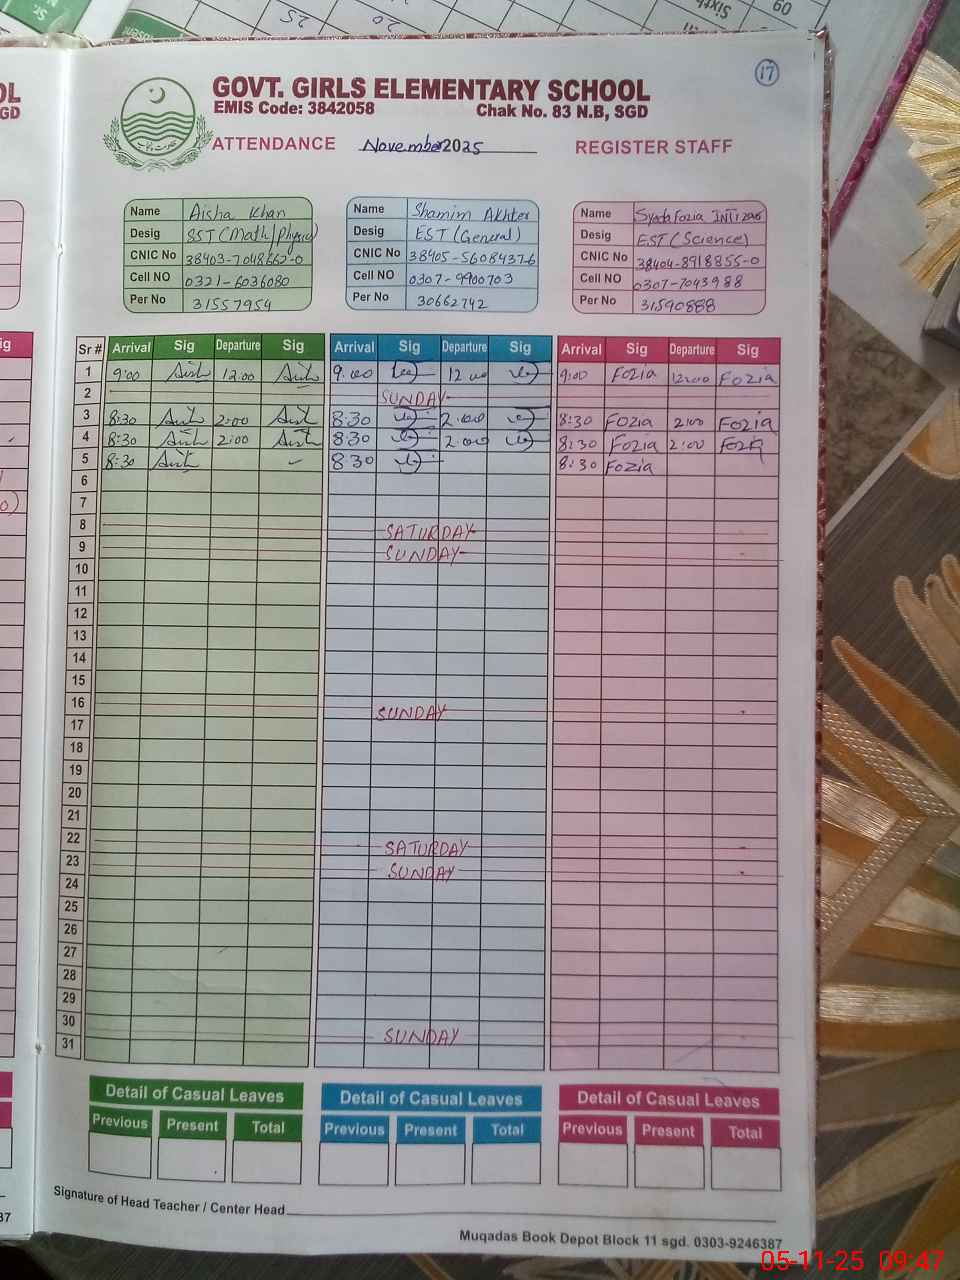 17
GOVT. GIRLS ELEMENTARY SCHOOL
EMIS Code: 3842058 Chak No. 83 N.B, SGD
ATTENDANCE November 2025 REGISTER STAFF
Name Aisha Khan
Desig SST (Math/Physics)
CNIC No 38403-7048662-0
Cell NO 0321-6036080
Per No 31557954
Name Shamim Akhter
Desig EST (General)
CNIC No 38405-5608437-6
Cell NO 0307-9900703
Per No 30662742
Name Syeda Fozia
Desig EST (Science)
CNIC No 38404-8918855-0
Cell NO 0307-7043988
Per No 31590888
Sr # Arrival Sig Departure Sig Arrival Sig Departure Sig Arrival Sig Departure Sig
1 9:00 12:00 9.00 12.00 9:00 Fozia 12:00 Fozia
2 SUNDAY
3 8:30 2:00 8:30 2.00 8:30 Fozia 2:00 Fozia
4 8:30 2:00 8:30 2.00 8:30 Fozia 2:00 Fozia
5 8:30 8:30 8:30 Fozia
6
7
8 SATURDAY
9 SUNDAY
10
11
12
13
14
15
16 SUNDAY
17
18
19
20
21
22 SATURDAY
23 SUNDAY
24
25
26
27
28
29
30 SUNDAY
31
Detail of Casual Leaves Detail of Casual Leaves Detail of Casual Leaves
Previous Present Total Previous Present Total Previous Present Total
Signature of Head Teacher / Center Head
Muqadas Book Depot Block 11 sgd. 0303-9246387
05-11-25 09:47